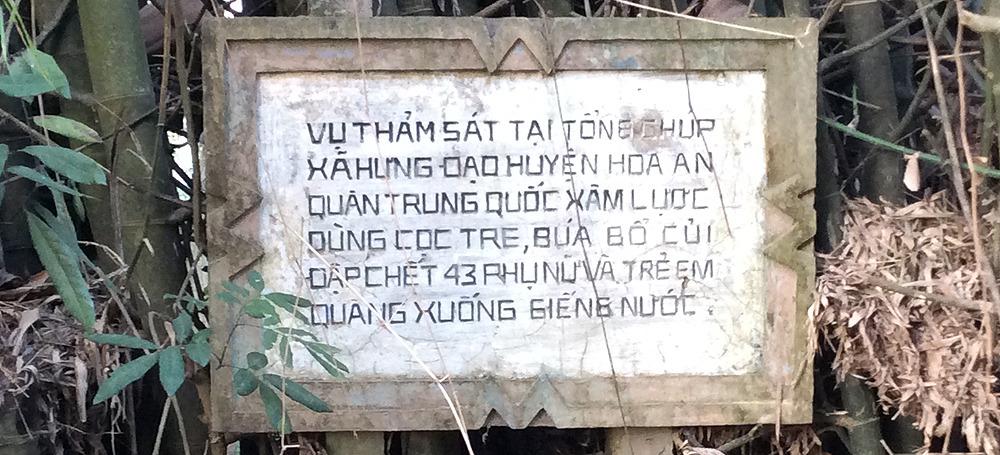 VỤ THẢM SÁT TẠI TỔNG CHÚP
XÃ HƯNG ĐẠO HUYỆN HOÀ AN
QUÂN TRUNG QUỐC XÂM LƯỢC
DÙNG CỌC TRE, BÚA BỔ CỦI
ĐẬP CHẾT 43 PHỤ NỮ VÀ TRẺ EM
QUANG XUỐNG GIẾNG NƯỚC.